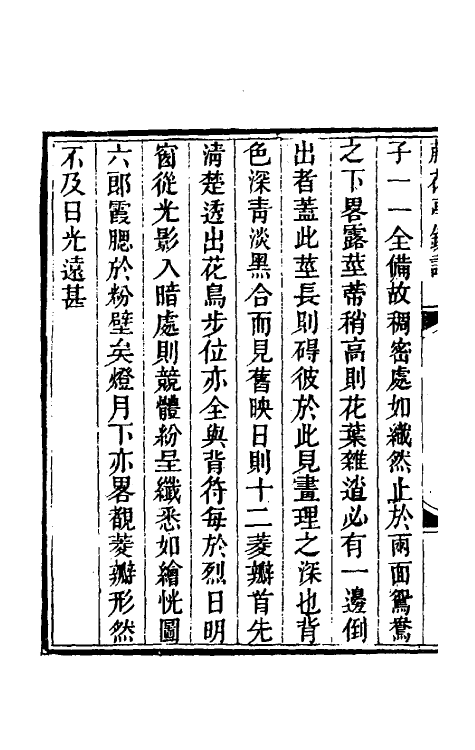 子一一全備故稠密處如織然止於兩面鴛鴦
之下畧露莖蒂稍高則花葉雜遒必有一邊倒
出者蓋此莖長則碍彼於此見畫理之深也背
色深靑淡黑合而見舊映日則十二菱瓣首先
清楚透出花鳥步位亦全與背符每於烈日明
窗從光影入暗處則競體紛呈纖悉如繪恍圖
六郎霞腮於粉壁矣燈月下亦畧覩菱瓣形然
不及日光遠甚